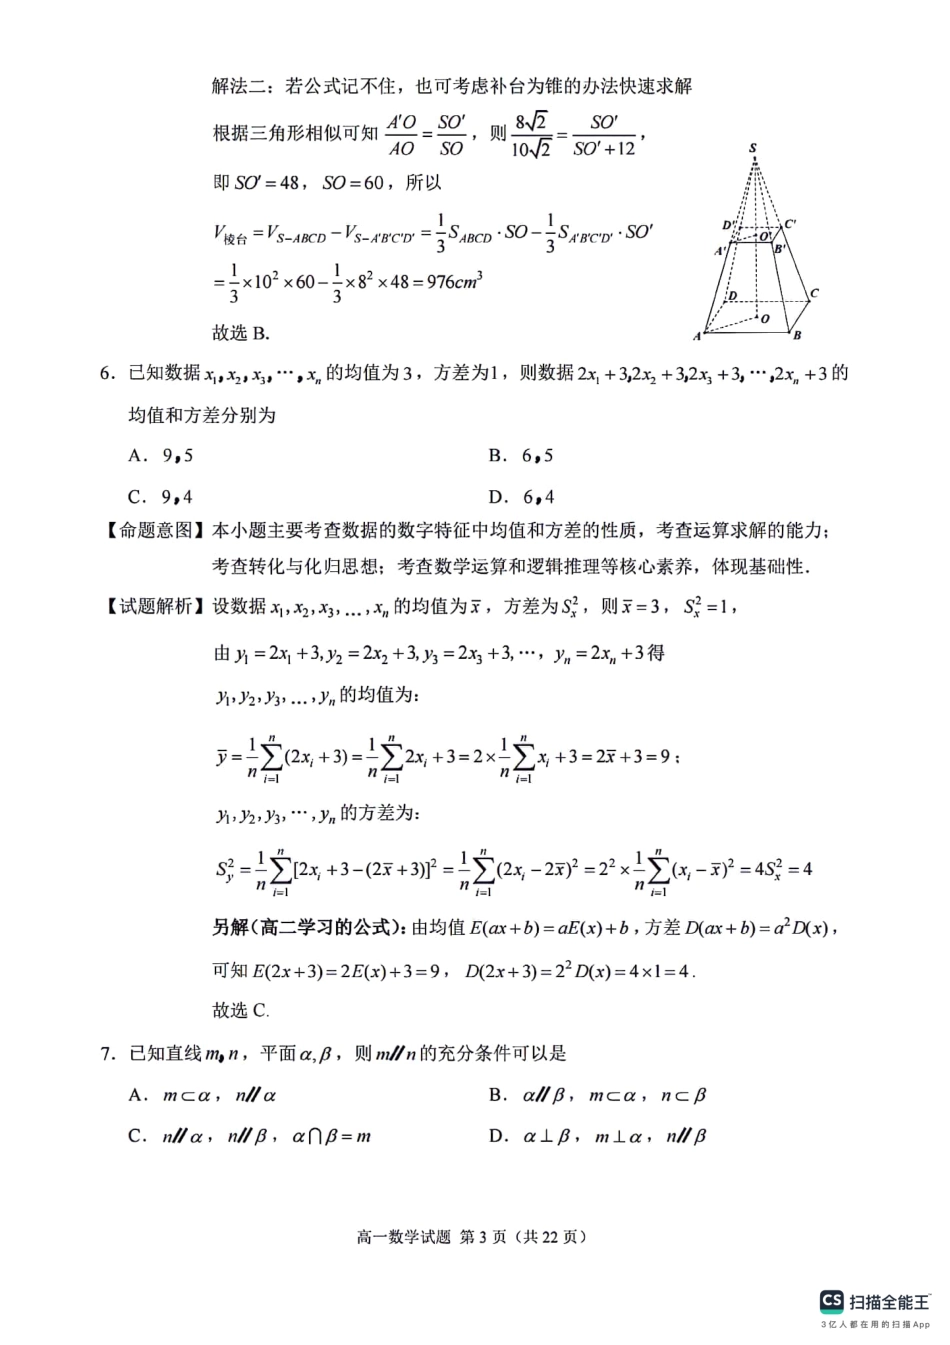 解法二：若公式记不住，也可考虑补台为锥的办法快速求解
根据三角形相似可知 A'O/AO = SO'/SO，则 8√2/10√2 = SO'/(SO'+12)，
即 SO' = 48，SO = 60，所以
V棱台 = V_{S-ABCD} − V_{S-A'B'C'D'} = 1/3 S_{ABCD} · SO − 1/3 S_{A'B'C'D'} · SO'
= 1/3 × 10² × 60 − 1/3 × 8² × 48 = 976cm³
故选 B.
S
D' C'
O'
A' B'
D C
O
A B
6．已知数据 x₁, x₂, x₃, ⋯, xₙ 的均值为 3，方差为1，则数据 2x₁ + 3,2x₂ + 3,2x₃ + 3, ⋯,2xₙ + 3 的
均值和方差分别为
A．9,5 B．6,5
C．9,4 D．6,4
【命题意图】本小题主要考查数据的数字特征中均值和方差的性质，考查运算求解的能力；
考查转化与化归思想；考查数学运算和逻辑推理等核心素养，体现基础性．
【试题解析】设数据 x₁, x₂, x₃, …, xₙ 的均值为 x̄，方差为 Sₓ²，则 x̄ = 3，Sₓ² = 1，
由 y₁ = 2x₁ + 3, y₂ = 2x₂ + 3, y₃ = 2x₃ + 3, ⋯，yₙ = 2xₙ + 3 得
y₁, y₂, y₃, …, yₙ 的均值为：
ȳ = 1/n ∑_{i=1}^{n} (2xᵢ + 3) = 1/n ∑_{i=1}^{n} 2xᵢ + 3 = 2 × 1/n ∑_{i=1}^{n} xᵢ + 3 = 2x̄ + 3 = 9；
y₁, y₂, y₃, ⋯, yₙ 的方差为：
S_y² = 1/n ∑_{i=1}^{n} [2xᵢ + 3 − (2x̄ + 3)]² = 1/n ∑_{i=1}^{n} (2xᵢ − 2x̄)² = 2² × 1/n ∑_{i=1}^{n} (xᵢ − x̄)² = 4Sₓ² = 4
另解（高二学习的公式）：由均值 E(ax + b) = aE(x) + b，方差 D(ax + b) = a²D(x)，
可知 E(2x + 3) = 2E(x) + 3 = 9，D(2x + 3) = 2²D(x) = 4 × 1 = 4．
故选 C.
7．已知直线 m, n，平面 α, β，则 m∥n 的充分条件可以是
A．m ⊂ α，n∥α B．α∥β，m ⊂ α，n ⊂ β
C．n∥α，n∥β，α⋂β = m D．α ⊥ β，m ⊥ α，n∥β
高一数学试题 第 3 页（共 22 页）
CS 扫描全能王
3亿人都在用的扫描App